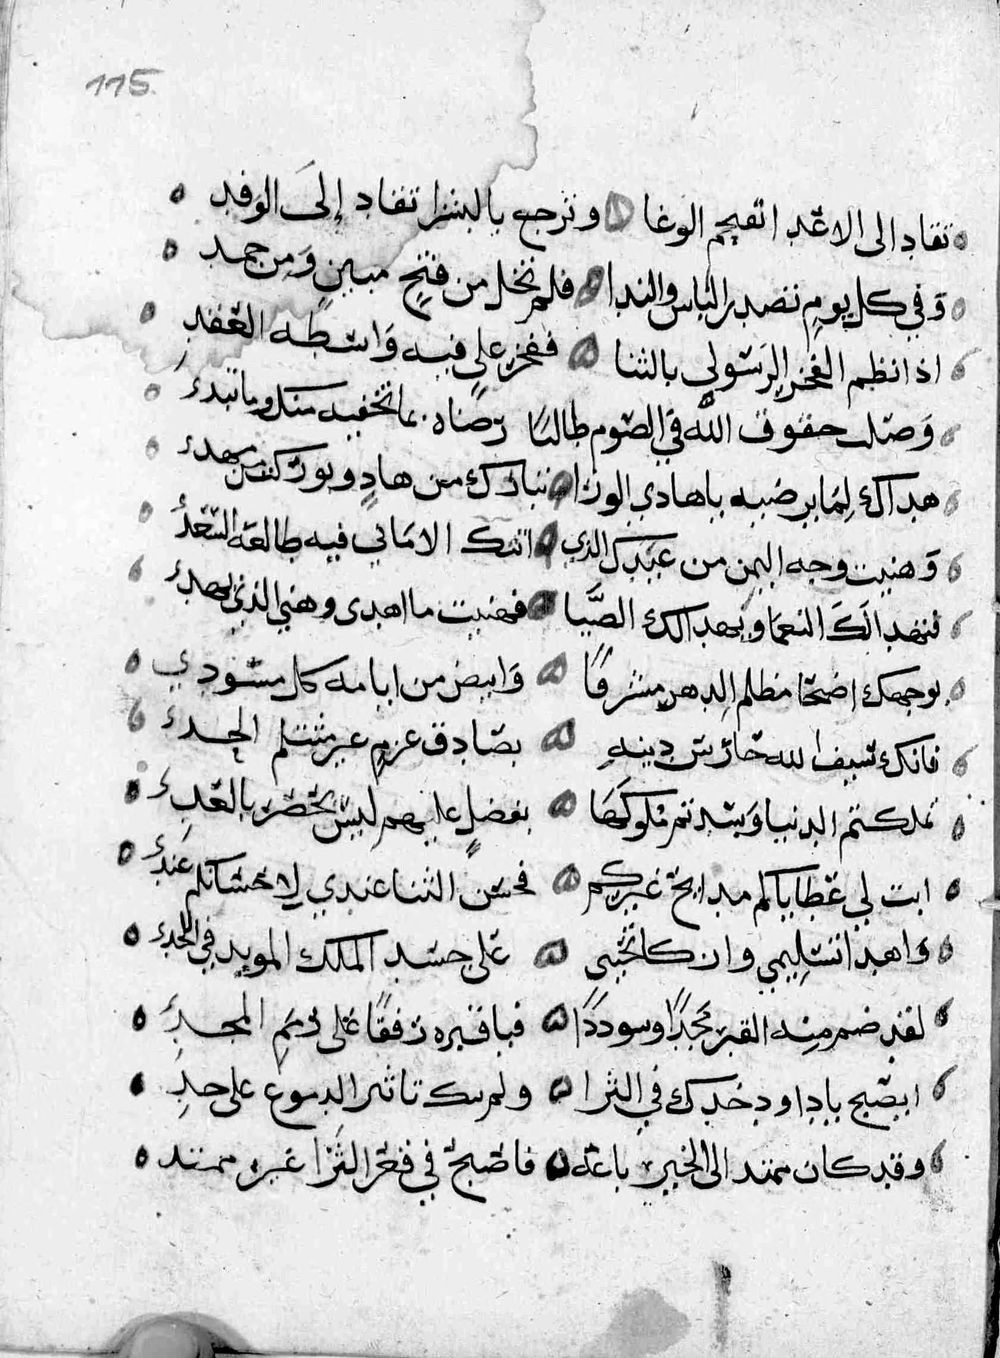 115
تقاد الى الاعدا تقيم الوغا وترجع بالبشرا تقاد إلى الوفد
وفي كل يوم تصدر الباس والندا فلم تخل من فتح مبين ومن حمد
اذا نظم الفخر الرسولي بالثنا ففخر علي فيه واسطه العقد
وصلت حقوق الله في الصوم طالبا رضاه بما تخفيه منك وما تبدي
هداك لما يرضيه يا هادي الورا تباركت من هاد وبوركت من مهدي
وهنيت وجه اليمن من عيدك الذي اتتك الاماني فيه طالعه السعد
فتهدا لك النعما ويهدا لك الضيا فهنيت ما اهدى وهني الذي يهدي
بوجهك اضحا مظلم الدهر مشرقا وابيض من ايامه كل مسودي
فانك سيف الله حارس دينه بصادق عزم غير منثلم الحد
تملكتم الدنيا وسدتم ملوكها بفضل عليهم ليس يحصر بالعد
ابت لي عطاياكم مدايح غيركم فحسن الثنا عندي لاحسانكم عندي
واهدا تسليمي وازكا تحيتي على جسد الملك المويد في اللحد
لقد ضم منه القبر مجدا وسوددا فيا قبره رفقا على رمم المجد
ايصبح يا داود خدك في الثرا ولم يبك تاثير الدموع على خد
وقد كان ممتد الى الخير باعه فاصبح في قعر الثرا غير ممتد